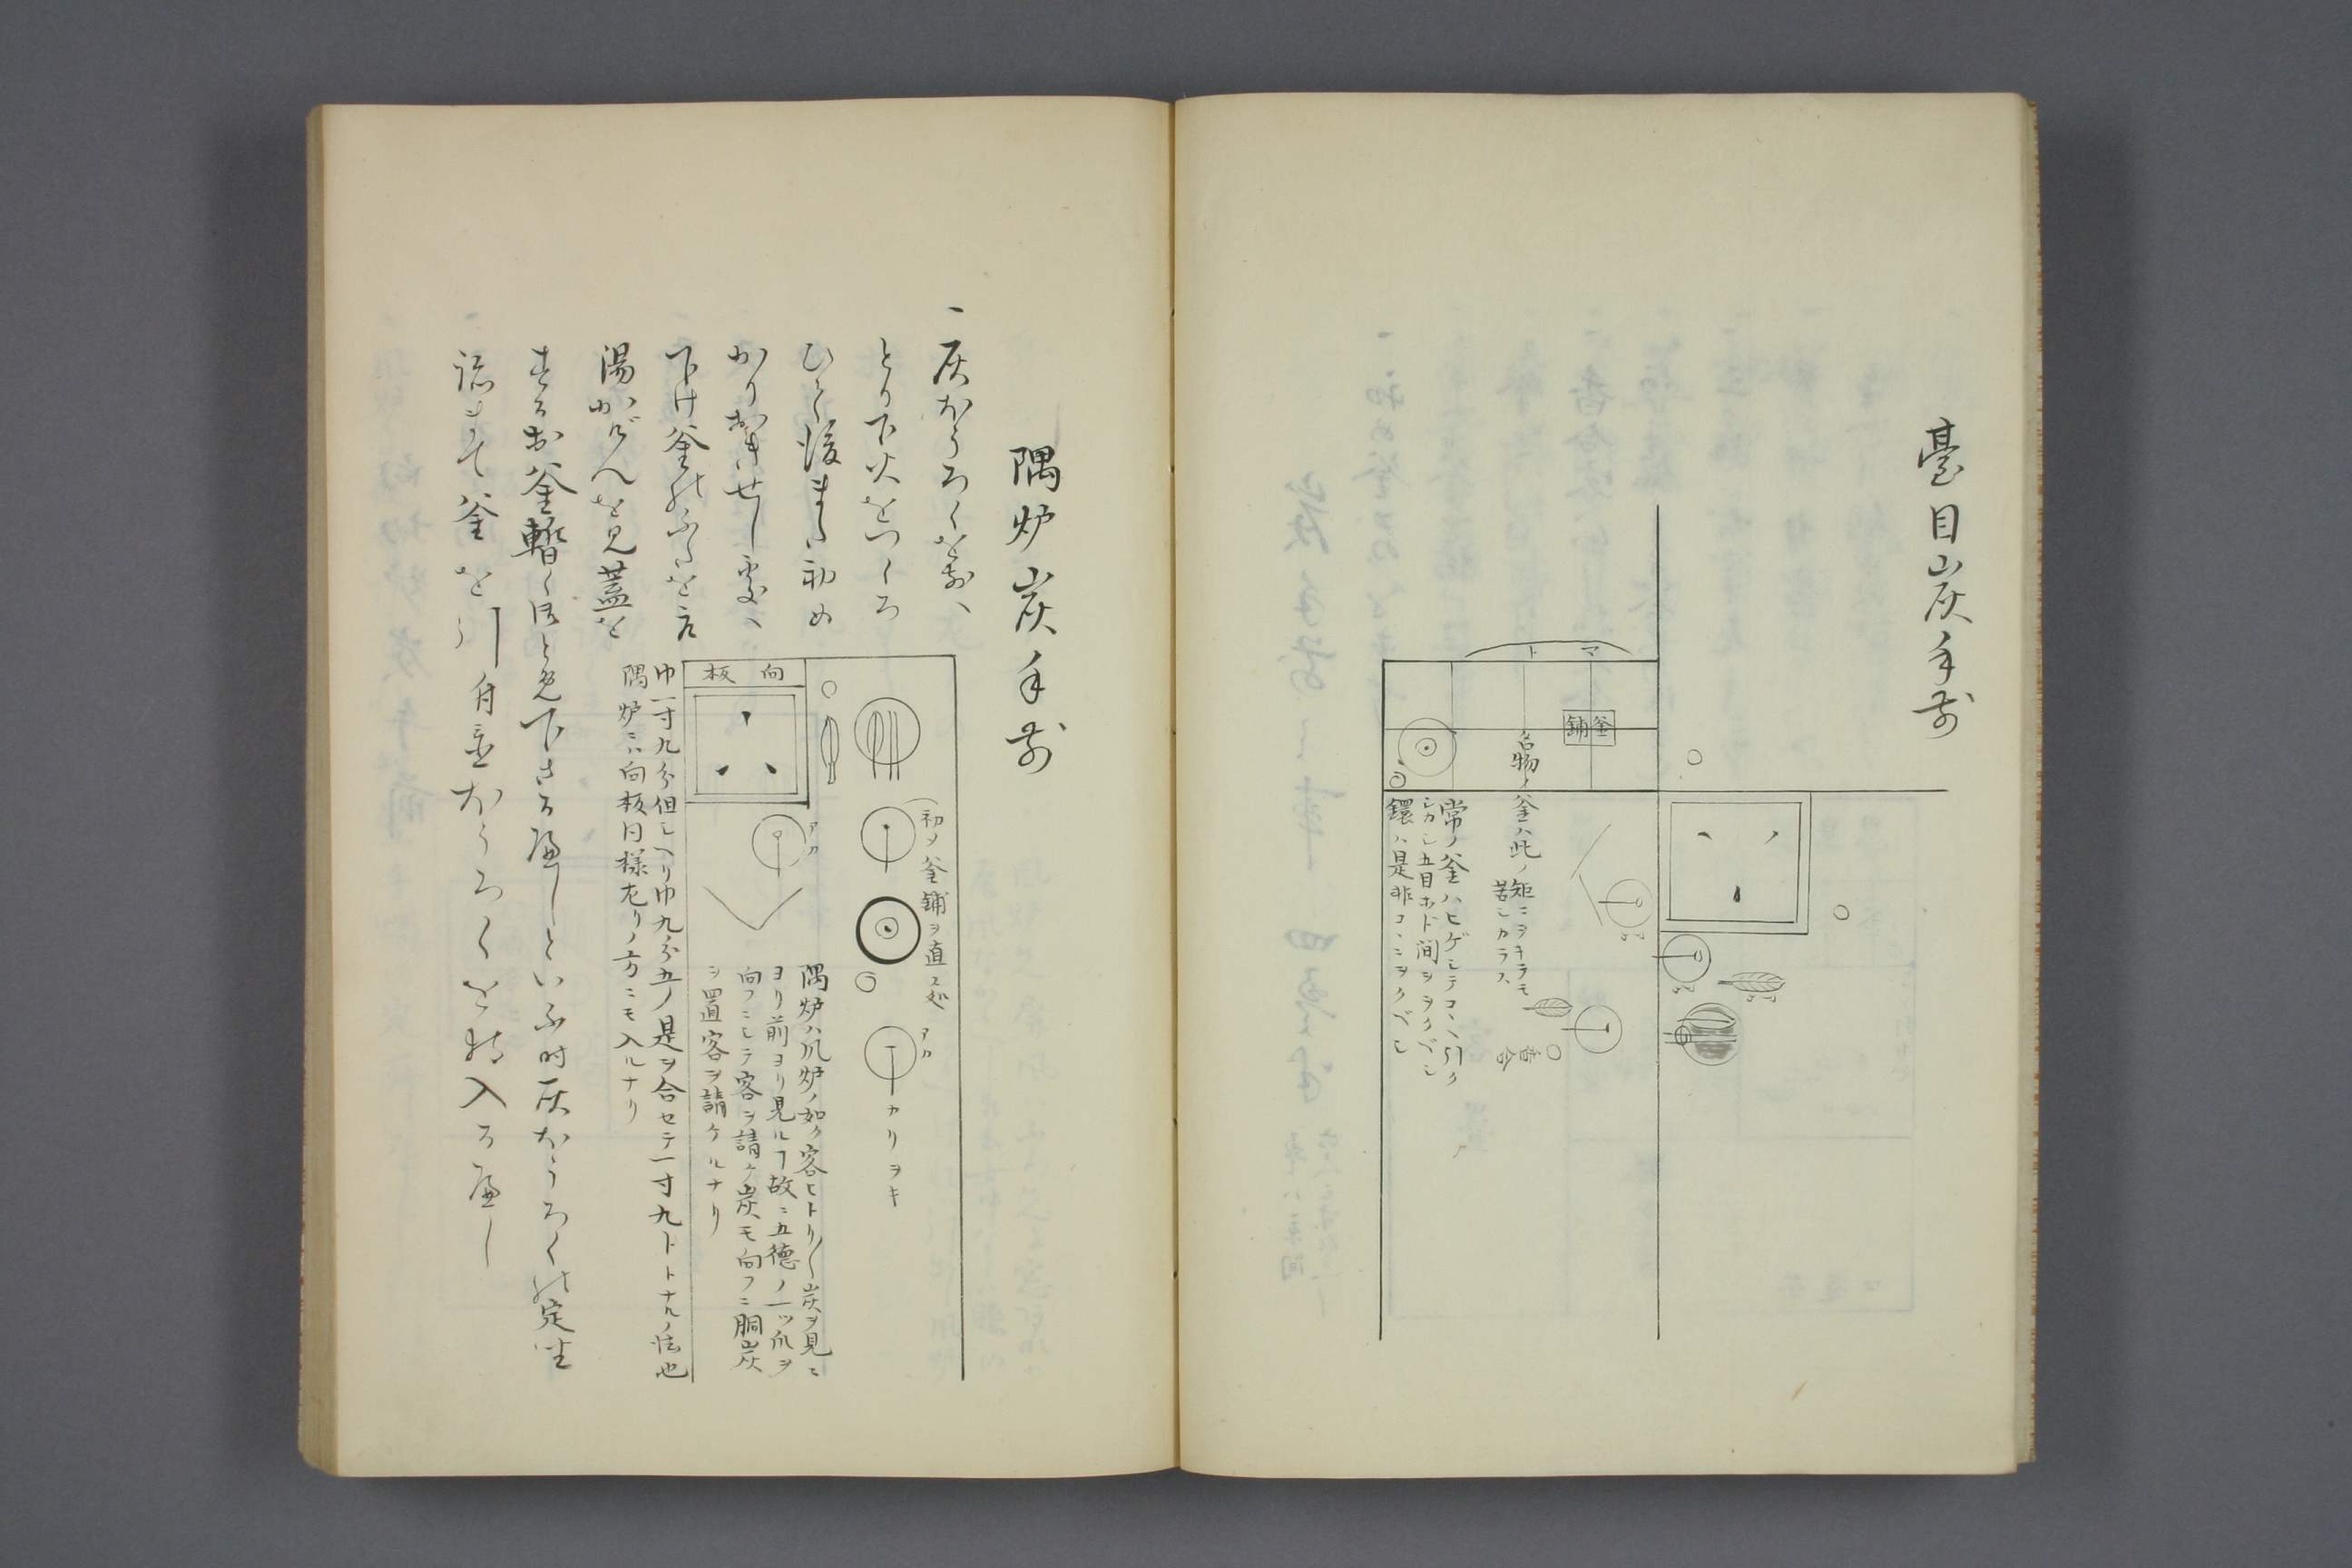 臺目炭手前
マト
釜鋪
名物ノ釜ハ此ノ矩ニヲキテモ
苦シカラス
常ノ釜ハヒゲシテコヽヘ引ク
シカシ五目ホド間ヲヲクベシ
鐶ハ是非コヽニヲクベシ
香合
隅炉炭手前
一灰ほうろくを前へ
とり下火をつくろ
ひて後また初め
かりおきせし処へ
下け釜のふたを
湯かげんを見蓋を
釜暫くほと免下さる遍しといふ時灰ほうろくの定座
釜を引付置ほうろくを持入る遍し
向板
アカ
初メ釜鋪ヲ直ス処
アカ
カリヲキ
隅炉ハ風炉ノ如ク客ヒトリ〳〵炭ヲ見ニ
ヨリ前ヨリ見ルヿ故ニ五徳ノ一ツ爪ヲ
向フニシテ客ヲ請ケ炭モ向フニ胴炭
ヲ置客ヲ請ケルナリ
巾一寸九分但シヘリ巾九分五ノ是ヲ合セテ一寸九トナルノ法也
隅炉ニハ向板同様左リノ方ニモ入ルナリ